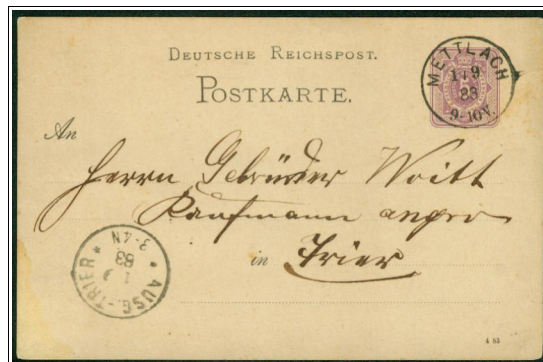 DEUTSCHE REICHSPOST.
POSTKARTE.
METTLACH
1 9
83
9-10V.
An
Herrn Gebrüder Woitt
Kaufmann engro
in Trier
AUSG. TRIER
1 9
83
3-4N
4 83